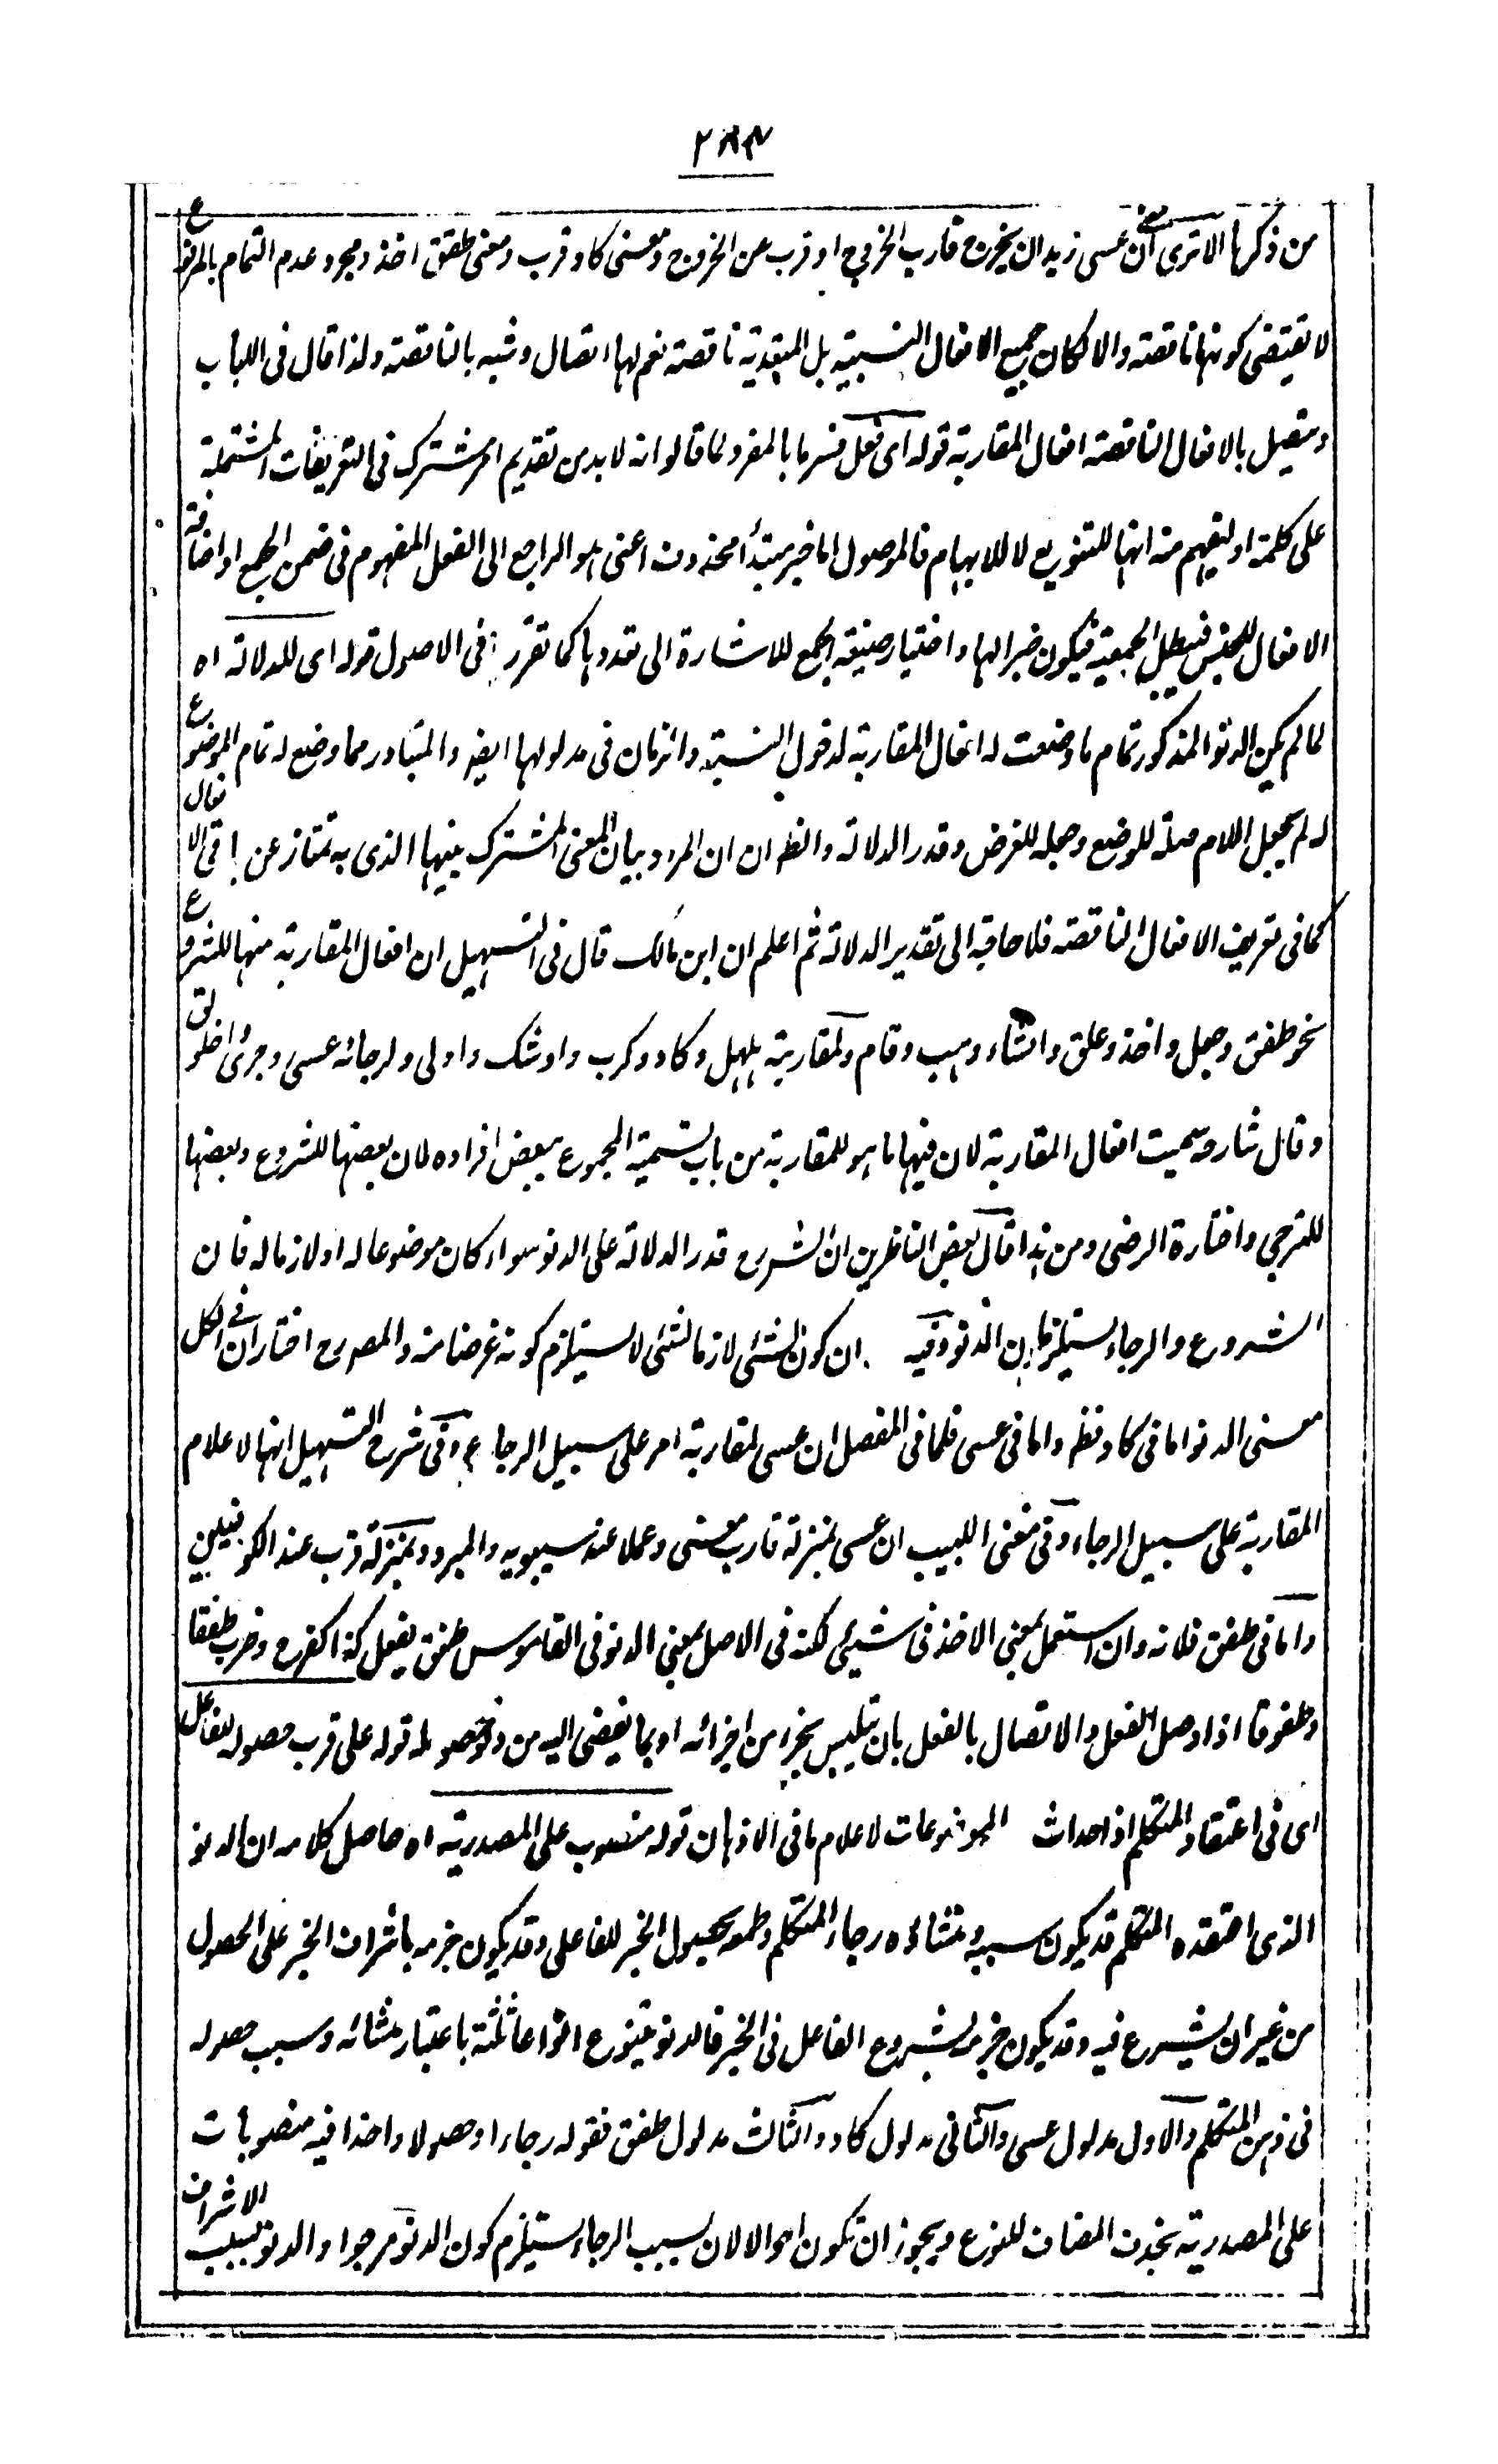 ٢٨٣
من ذكرها الا ترى ان معنى عسى زيد ان يخرج قارب الخروج او قرب من الخروج ومعنى كاد قرب ومعنى طفق اخذ ومجرد عدم التمام بالمرفوع
لا تقتضى كونها ناقصة والا لكان جميع الافعال النسبية بل المتعدية ناقصة نعم لها اتصال وشبه بالناقصة ولذا قال فى اللباب
ويتصل بالافعال الناقصة افعال المقاربة قوله اى فعل فسرما بالمفرد لما قالوا انه لا بد من تقديم امر مشترك فى التعريفات المشتملة
على كلمة او ليفهم منه انها للتنويع لا للابهام فالموصول اما خبر مبتدأ محذوف اعنى هو الراجع الى الفعل المفهوم فى ضمن الجمع او اضافة
الافعال للجنس فيبطل الجمعية فيكون خبرا لها واختيار صيغة الجمع للاشارة الى تعددها كما تقرر فى الاصول قوله اى للدلالة اه
لما لم يكن الدنو المذكور تمام ما وضعت له افعال المقاربة لدخول النسبة والزمان فى مدلولها ايضا والمتبادر مما وضع له تمام الموضوع
له لم يجعل اللام صلة للوضع وجعله للغرض وقدر الدلالة والظ ان ان المراد بيان المعنى المشترك بينها الذى به تمتاز عن باقى الافعال
كما فى تعريف الافعال الناقصة فلا حاجة الى تقدير الدلالة ثم اعلم ان ابن مالك قال فى التسهيل ان افعال المقاربة منها للشروع
نحو طفق وجعل واخذ وعلق وانشاء وهب وقام ولمقاربة هلهل وكاد وكرب واوشك واولى ولرجائه عسى وحرى واخلولق
وقال شارحه سميت افعال المقاربة لان فيها ما هو للمقاربة من باب تسمية المجموع ببعض افراده لان بعضها للشروع وبعضها
للترجى واختاره الرضى ومن هذا قال بعض الناظرين ان الشرح قدر الدلالة على الدنو سواء كان موضوعا له او لازما له فان
الشروع والرجاء يستلزمان الدنو وفيه ان كون الشئ لازما لشئ لا يستلزم كونه غرضا منه والمصرح اختار ان فى الكل
معنى الدنو اما فى كاد فظ واما فى عسى فلما فى المفصل ان عسى لمقاربة امر على سبيل الرجاء وفى شرح التسهيل انها لاعلام
المقاربة على سبيل الرجاء وفى مغنى اللبيب ان عسى بمنزلة قارب معنى وعملا عند سيبويه والمبرد وبمنزلة قرب عند الكوفيين
واما فى طفق فلانه وان استعمل بمعنى الاخذ فى شيئ لكنه فى الاصل بمعنى الدنو فى القاموس طفق يفعل كذا كفرح وضرب طفقا
وطفوقا اذا وصل الفعل والاتصال بالفعل بان تلبس بجزء من اجزائه او بما يفضى اليه من دنو حصوله قوله على قرب حصوله للفاعل
اى فى اعتقاد المتكلم اذ احداث الموضوعات لاعلام ما فى الاذهان قوله منصوب على المصدرية اه حاصل كلامه ان الدنو
الذى اعتقده المتكلم قد يكون سببه ومنشاؤه رجاء المتكلم وطمعه بحصول الخبر للفاعل وقد يكون جزمه باشراف الخبر على الحصول
من غير ان يشرع فيه وقد يكون جزمه بشروع الفاعل فى الخبر فالدنو يتنوع انواعا ثلثة باعتبار منشائه وسبب حصوله
فى ذهن المتكلم والاول مدلول عسى والثانى مدلول كاد والثالث مدلول طفق فقوله رجاء او حصولا واخذا فيه منصوبات
على المصدرية بحذف المضاف للنوع ويجوز ان تكون احوالا لان بسبب الرجاء يستلزم كون الدنو مرجوا والدنو بسبب الاشراف